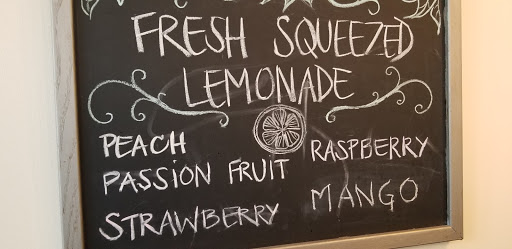 FRESH SQUEEZED
LEMONADE
PEACH
PASSION FRUIT
STRAWBERRY
RASPBERRY
MANGO